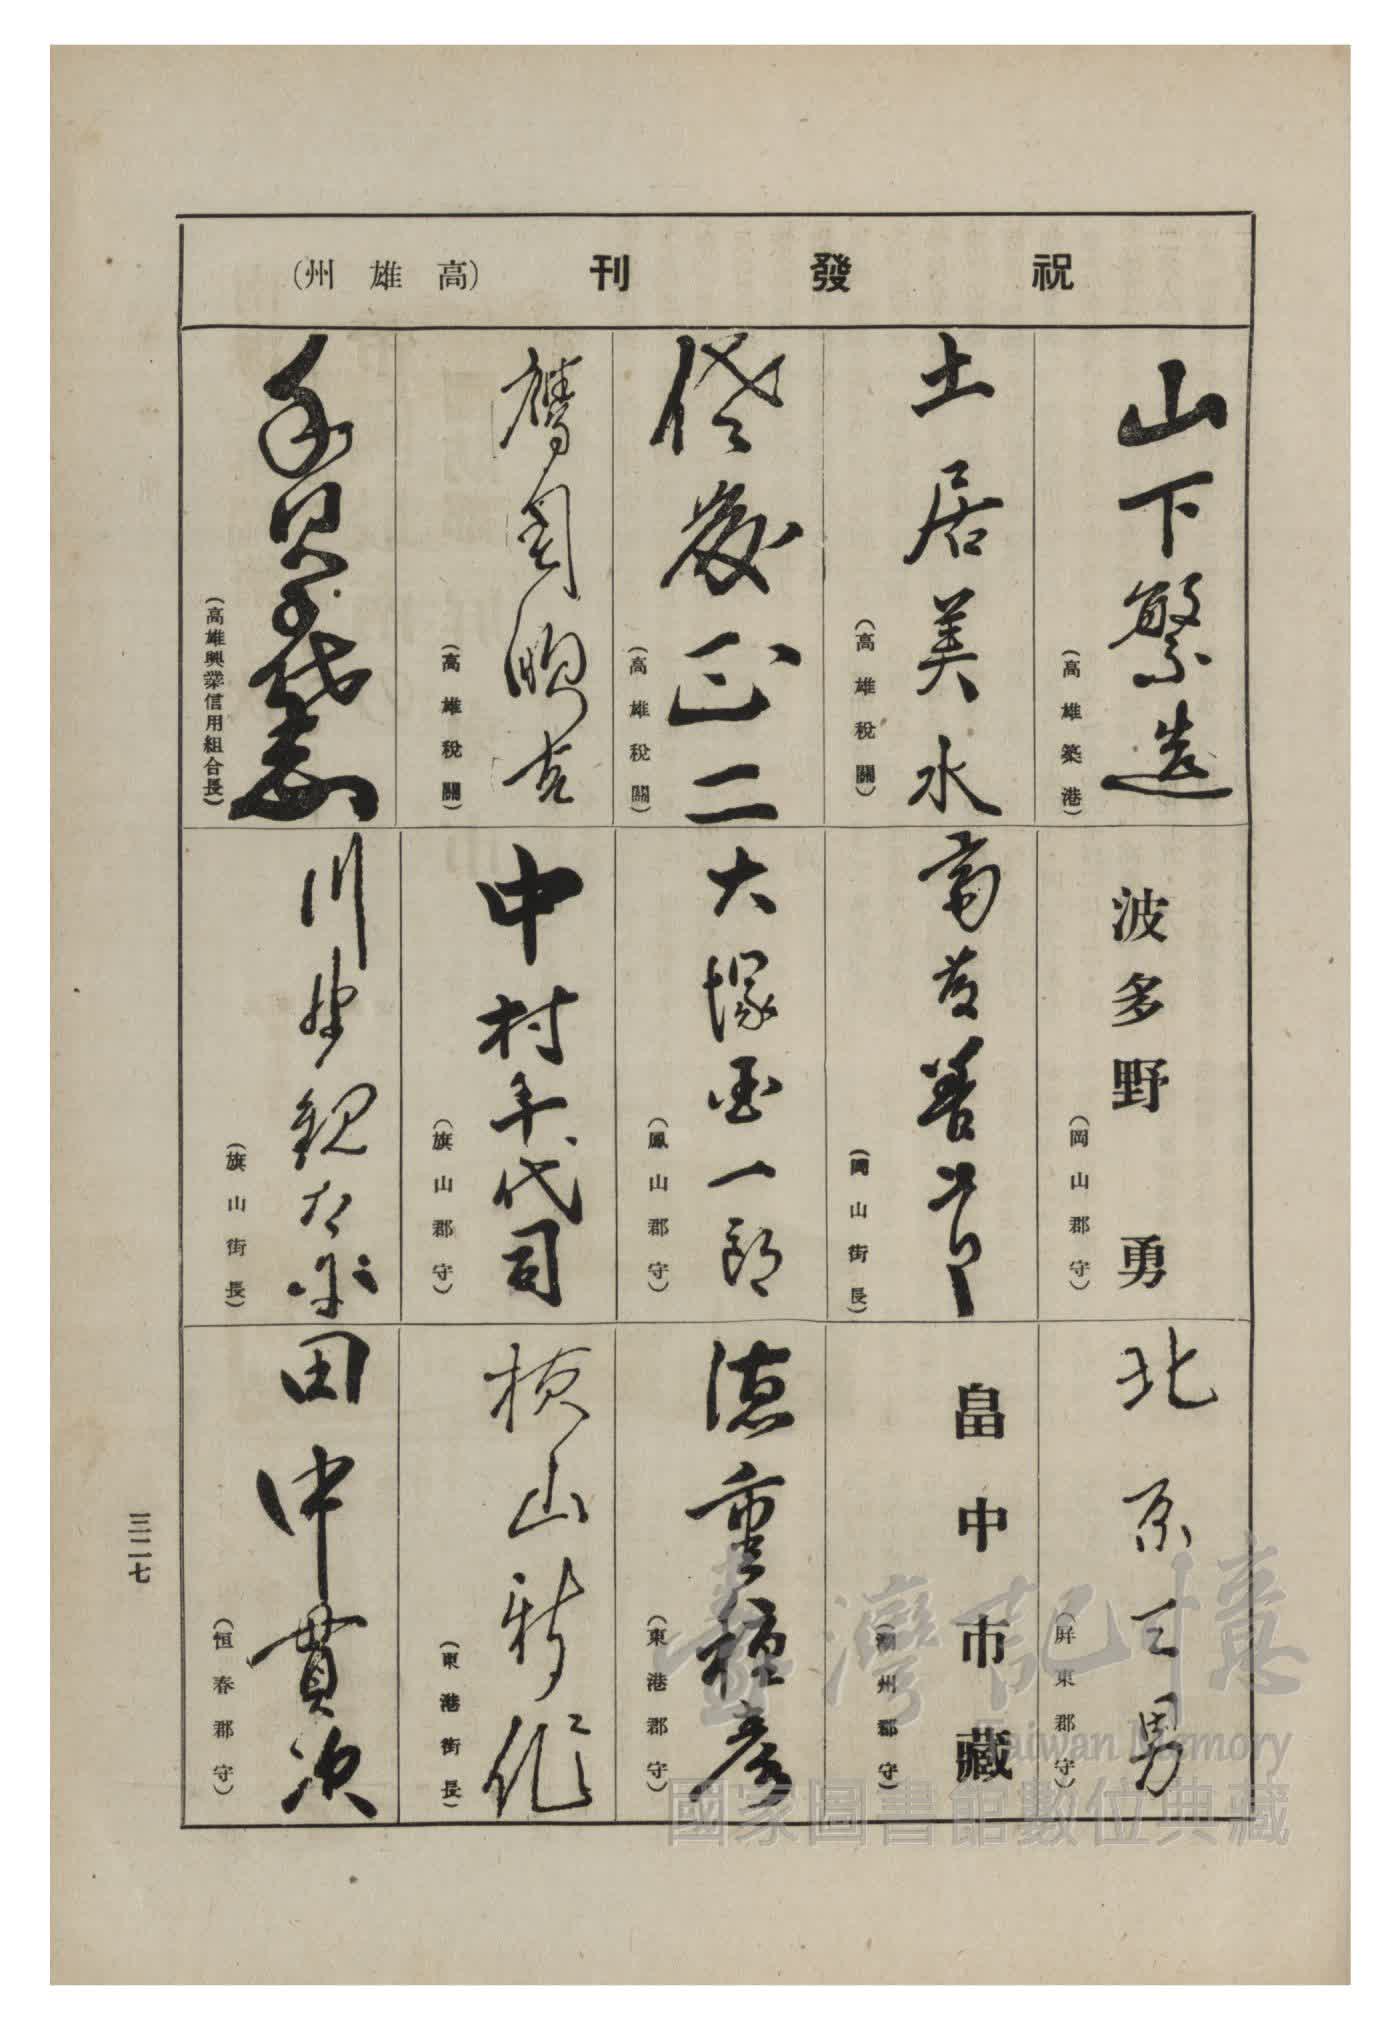 祝發刊（高雄州）
山下繁造
（高雄築港）
土居美水
（高雄稅關）
佐藤正二
（高雄稅關）
吉
（高雄稅關）
（高雄興業信用組合長）
波多野勇
（岡山郡守）
（岡山街長）
大塚 一郎
（鳳山郡守）
中村千代司
（旗山郡守）
川野 太郎
（旗山街長）
北原三男
（屏東郡守）
畠中市藏
（潮州郡守）
德重 彦
（東港郡守）
横山新作
（東港街長）
田中貫次
（恒春郡守）
三二七
臺灣記憶
Taiwan Memory
國家圖書館數位典藏